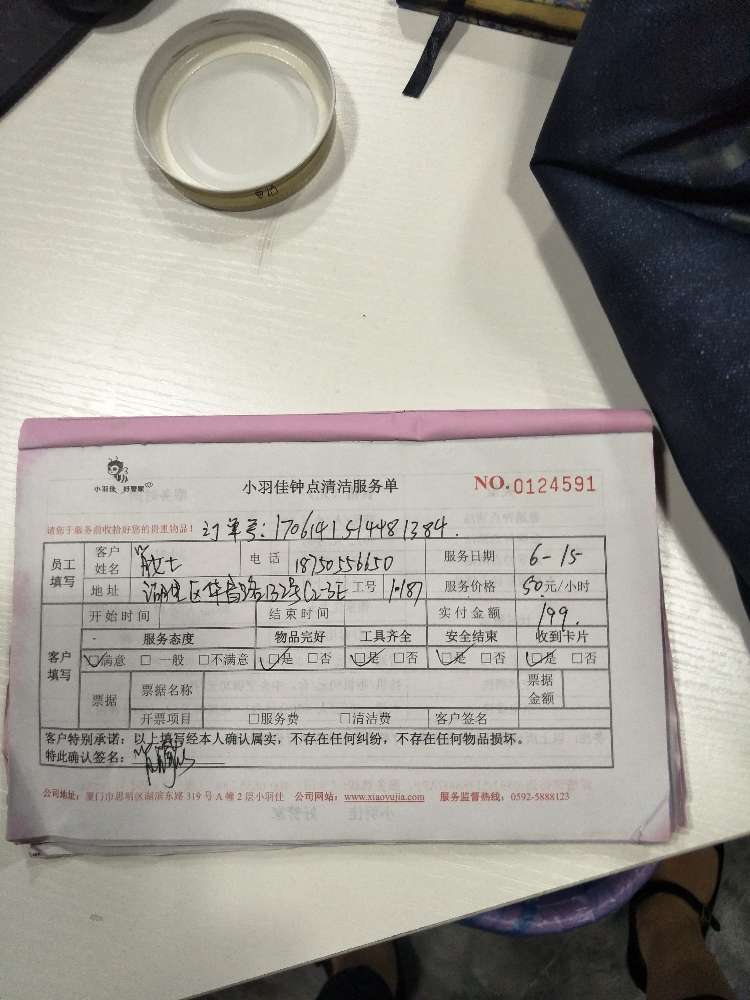 小羽佳 好管家
小羽佳钟点清洁服务单
NO. 0124591
请您于服务前收拾好您的贵重物品！ 订单号：1706141514481384.
员工填写 客户姓名 电话 18750556650 服务日期 6-15
地址 湖里区华昌路132号C2-3E 工号 10187 服务价格 50元/小时
开始时间 结束时间 实付金额 199.
客户填写 服务态度 物品完好 工具齐全 安全结束 收到卡片
☑满意 □一般 □不满意 ☑是 □否 ☑是 □否 ☑是 □否 ☑是 □否
票据 票据名称 票据金额
开票项目 □服务费 □清洁费 客户签名
客户特别承诺：以上填写经本人确认属实，不存在任何纠纷，不存在任何物品损坏。
特此确认签名：
公司地址：厦门市思明区湖滨东路 319 号 A 幢 2 层小羽佳 公司网站：www.xiaoyujia.com 服务监督热线：0592-5888123